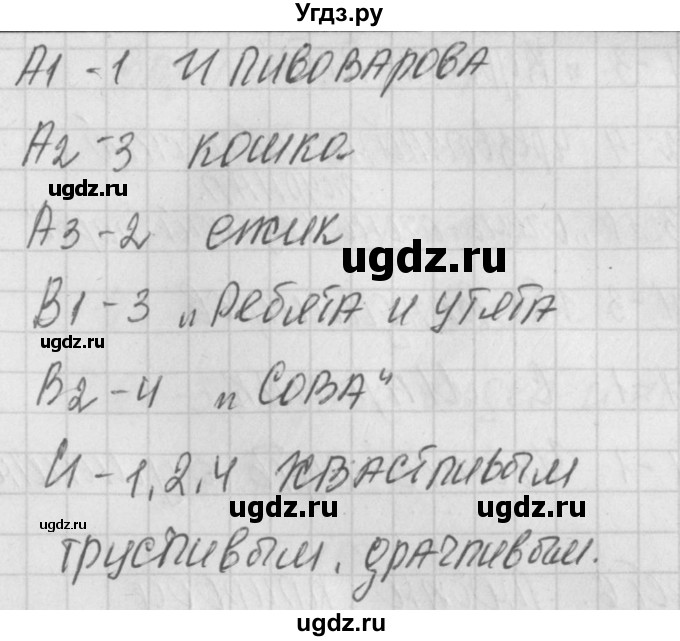 Угдз.ру
А1 - 1 И ПИВОВАРОВА
А2 - 3 кошка
ugdz.ru
А3 - 2 ежик
ugdz.ru
В1 - 3 „Ребята и утята
ugdz.ru
В2 - 4 „СОВА“
С1 - 1,2,4 хвастливым
ugdz.ru ugdz.ru
ugdz.ru
трусливым, драчливым.
ugdz.ru